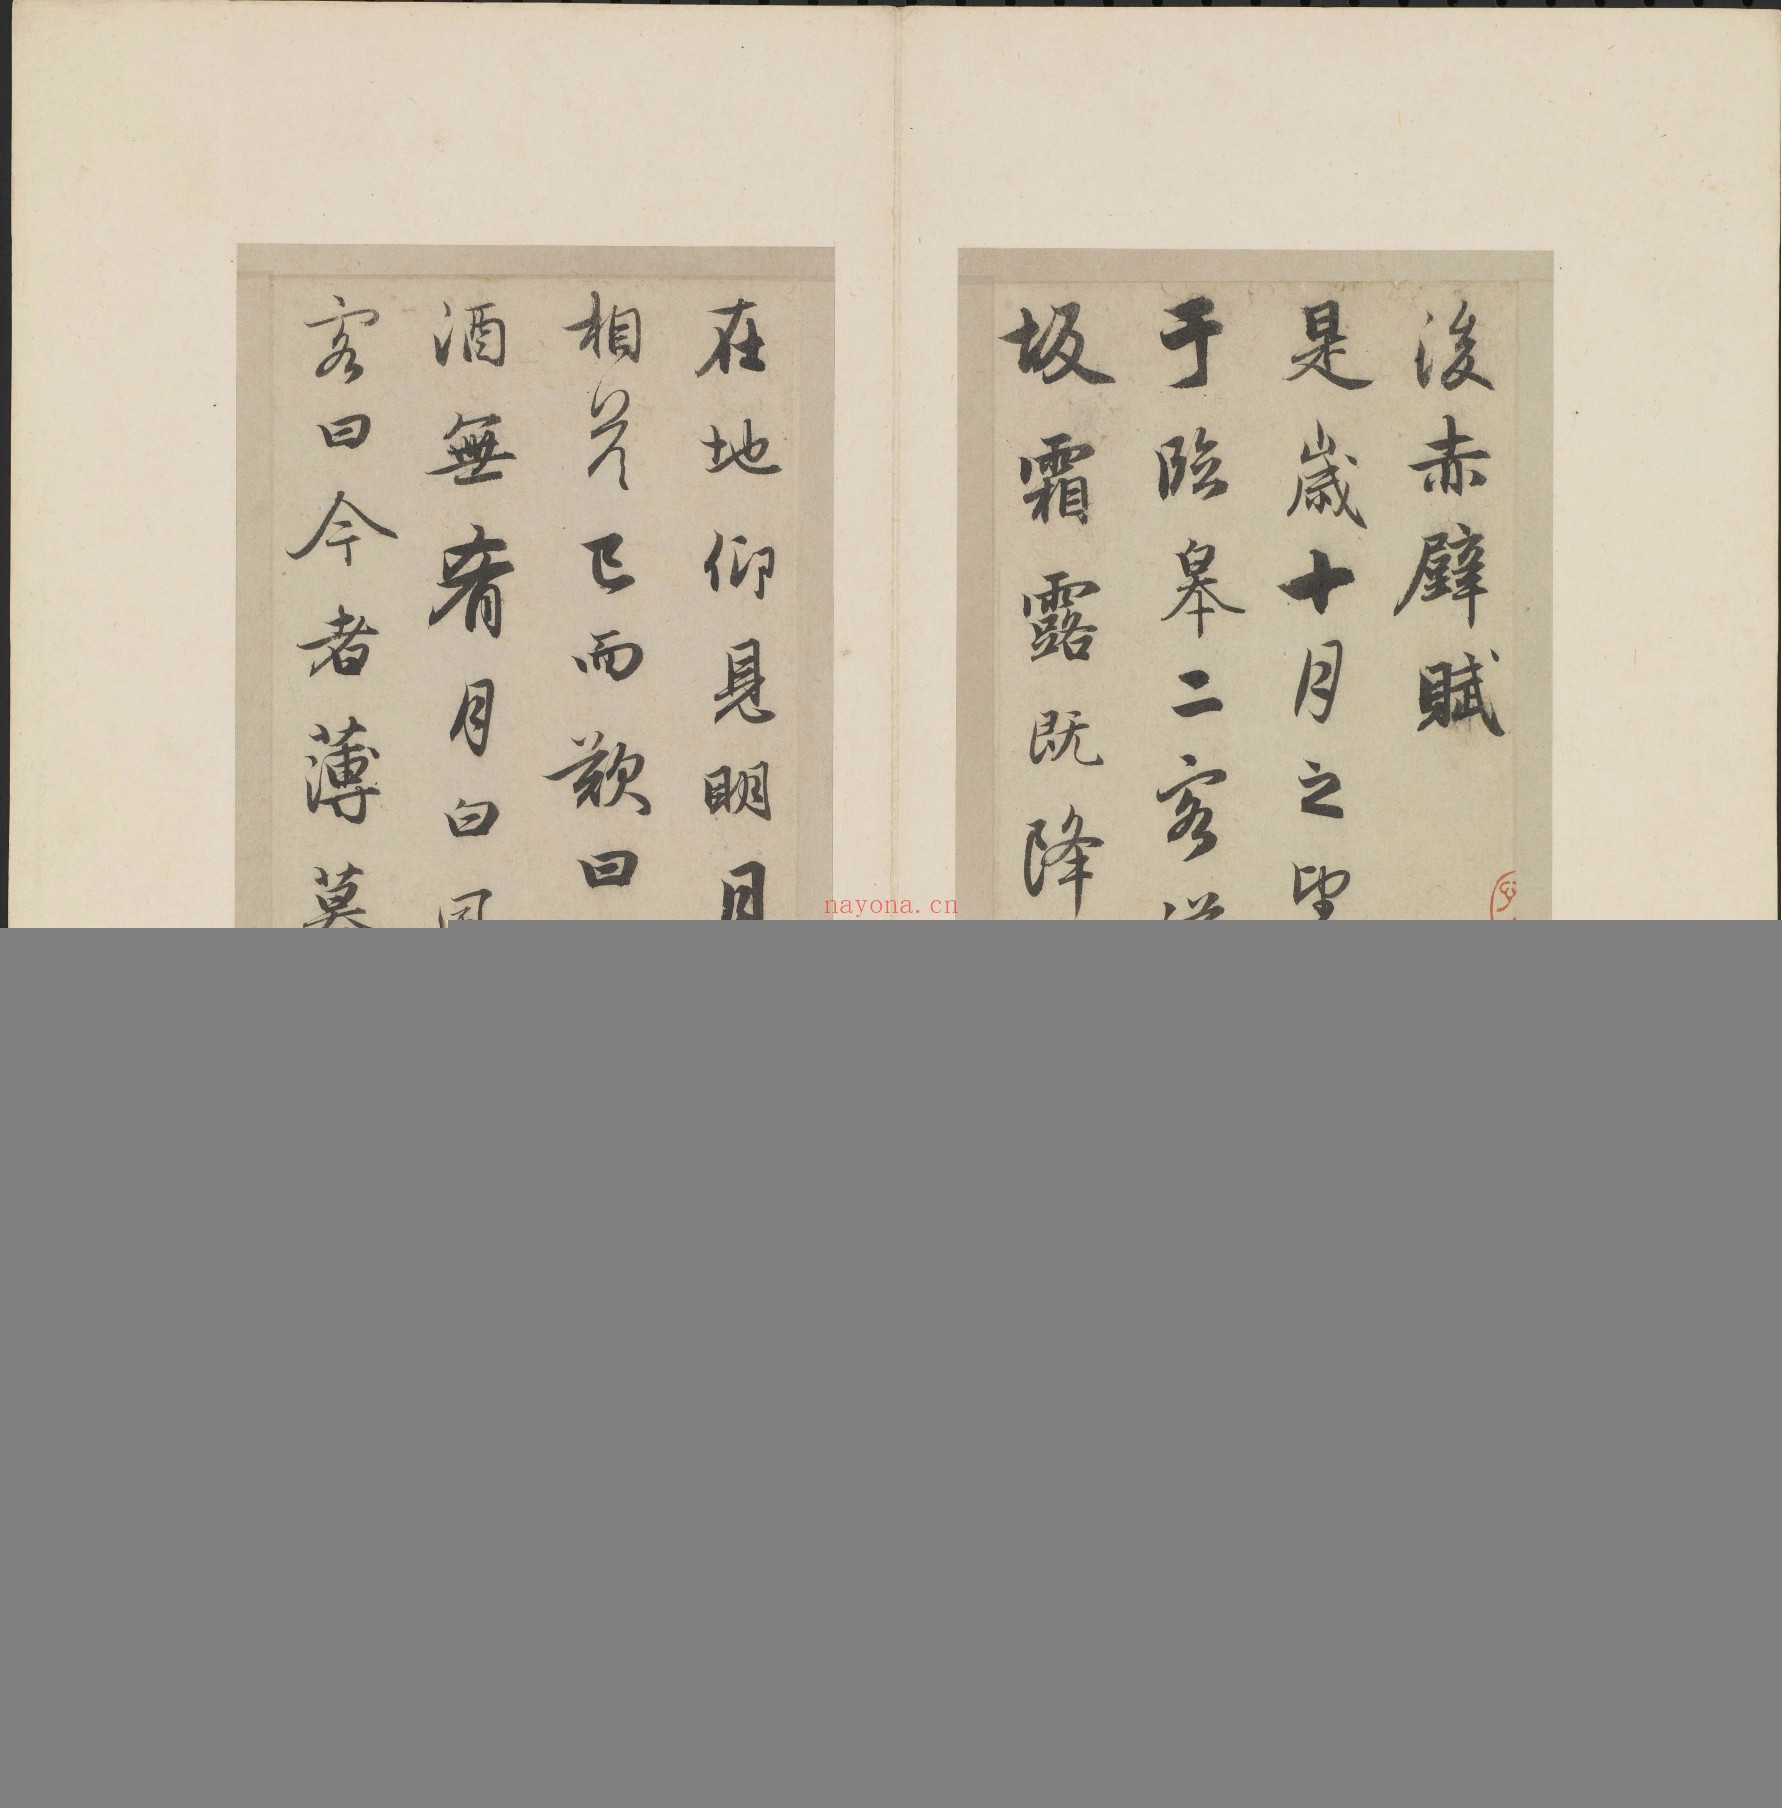 後赤壁賦
是歲十月之望
于臨皋二客從
坂霜露既降
在地仰見明月
相答已而歎曰
酒無肴月白風
客曰今者薄莫
nayona.cn